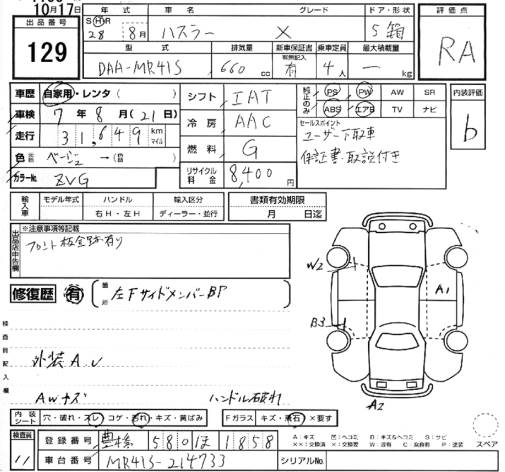 10月17日
出品番号 129
年式 車名 グレード ドア・形状
SHR 28 8月 ハスラー X 5 箱
型式 排気量 新車保証書 有無記入 乗車定員 最大積載量
DAA-MR41S 660cc 有 4人 ー kg
評価点 RA
車歴 自家用・レンタ( )
車検 7年8月(21日)
走行 31,649 km マイル
色 ベージュ→( )
カラーNo. ZVG
シフト IAT
冷房 AAC
燃料 G
リサイクル料金 8,400円
純正のみ PS PW AW SR
ABS エアB TV ナビ
セールスポイント
ユーザー下取車
保証書・取説付き
内装評価 b
輸入車 モデル年式 ハンドル 輸入区分
年 右H・左H ディーラー・並行
書類有効期限
月 日迄
出品店申告欄
※注意事項等記載
フロント板金跡有り
修復歴 有 箇所 左FサイドメンバーBP
検査員記入欄
外装AU
AWキズ ハンドル破れ
W2
B3
A1
A2
内装シート 穴・破れ・スレ コゲ・汚れ・キズ・黄ばみ
Fガラス キズ・飛石 ×要す
スペア
検査員 11
登録番号 豊橋 580 ほ 1858
車台番号 MR41S-214733
シリアルNo.